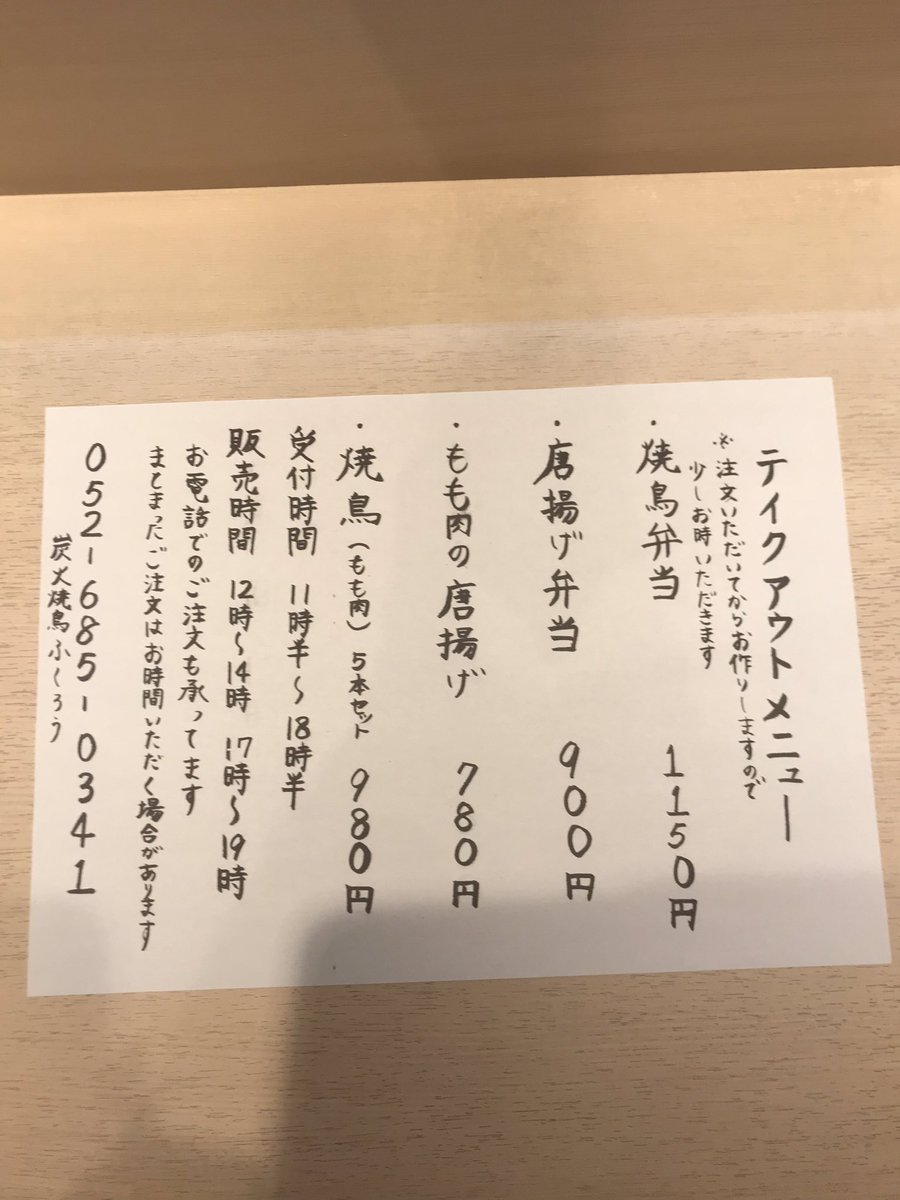 テイクアウトメニュー
※注文いただいてからお作りしますので
少しお時いただきます
・焼鳥弁当 1150円
・唐揚げ弁当 900円
・もも肉の唐揚げ 780円
・焼鳥(もも肉)5本セット 980円
受付時間 11時半〜18時半
販売時間 12時〜14時 17時〜19時
お電話でのご注文も承ってます
まとまったご注文はお時間いただく場合があります
052-685-0341
炭火焼鳥ふくろう